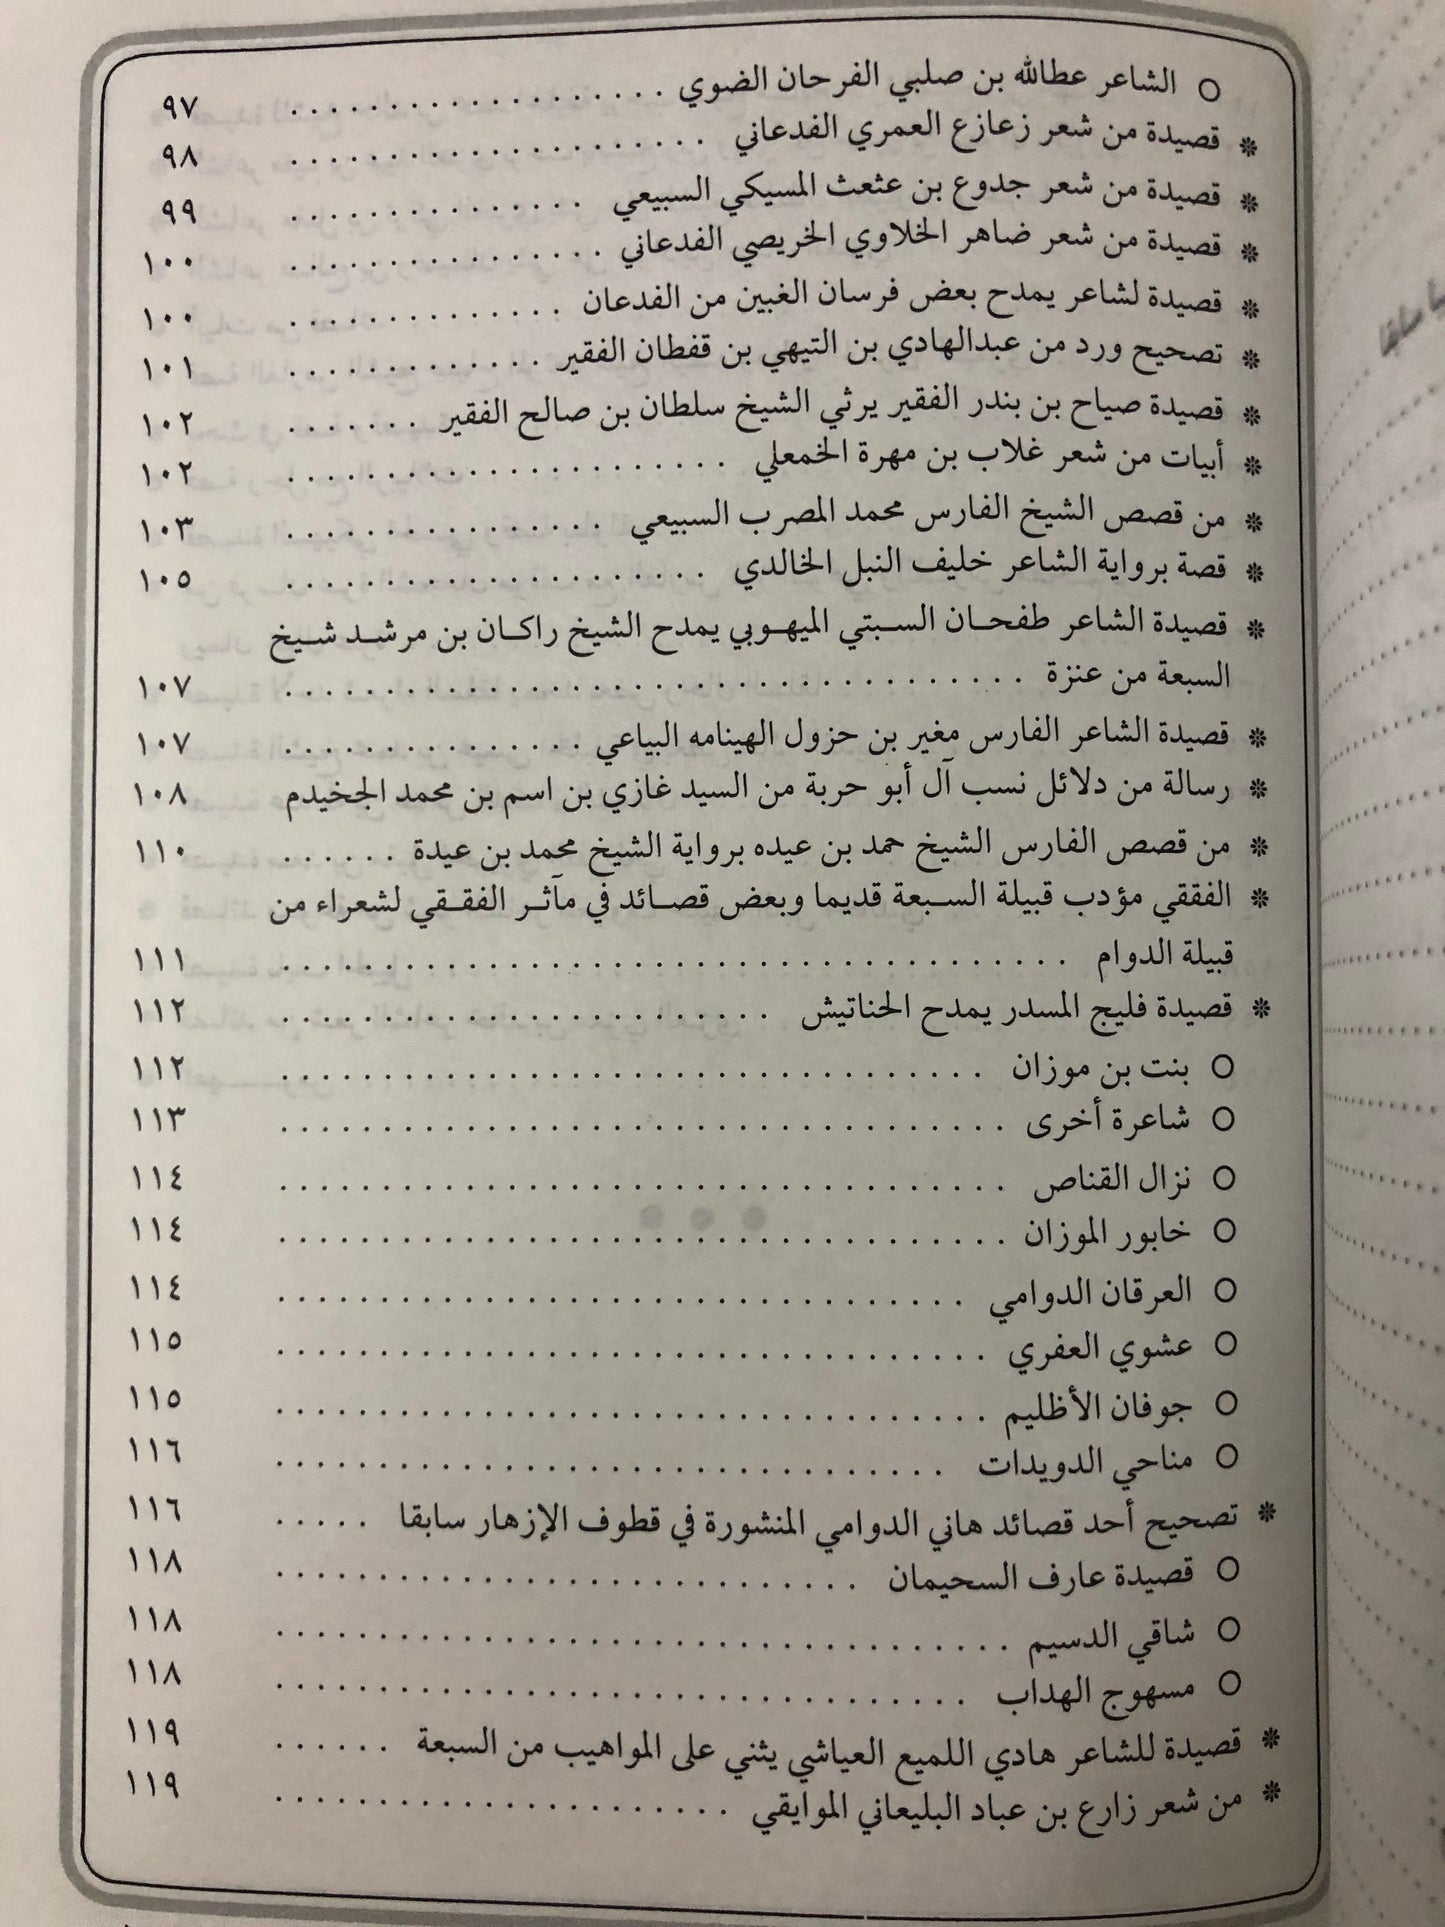 ○ الشاعر عطالله بن صلبي الفرحان الضوي . . . . . . . . . . . . . . . . . . . ٩٧
❊ قصيدة من شعر زعازع العمري الفدعاني . . . . . . . . . . . . . . . . . . . . . ٩٨
❊ قصيدة من شعر جدوع بن عثعث المسيكي السبيعي . . . . . . . . . . . . . . . ٩٩
❊ قصيدة من شعر ضاهر الخلاوي الخريصي الفدعاني . . . . . . . . . . . . . . . . ١٠٠
❊ قصيدة لشاعر يمدح بعض فرسان الغبين من الفدعان . . . . . . . . . . . . . . ١٠٠
❊ تصحيح ورد من عبدالهادي بن التيهي بن قفطان الفقير . . . . . . . . . . . . . ١٠١
❊ قصيدة صياح بن بندر الفقير يرثي الشيخ سلطان بن صالح الفقير . . . . . . . ١٠٢
❊ أبيات من شعر غلاب بن مهرة الخمعلي . . . . . . . . . . . . . . . . . . . . . . ١٠٢
❊ من قصص الشيخ الفارس محمد المصرب السبيعي . . . . . . . . . . . . . . . . ١٠٣
❊ قصة برواية الشاعر خليف النبل الخالدي . . . . . . . . . . . . . . . . . . . . . ١٠٥
❊ قصيدة الشاعر طفحان السبتي الميهوبي يمدح الشيخ راكان بن مرشد شيخ
السبعة من عنزة . . . . . . . . . . . . . . . . . . . . . . . . . . . . . . . . . . . . ١٠٧
❊ قصيدة الشاعر الفارس مغير بن حزول الهينامه البياعي . . . . . . . . . . . . . . . ١٠٧
❊ رسالة من دلائل نسب آل أبو حربة من السيد غازي بن اسم بن محمد الجخيدم ١٠٨
❊ من قصص الفارس الشيخ حمد بن عيده برواية الشيخ محمد بن عيدة . . . . . . ١١٠
❊ الفققي مؤدب قبيلة السبعة قديما وبعض قصائد في مآثر الفققي لشعراء من
قبيلة الدوام . . . . . . . . . . . . . . . . . . . . . . . . . . . . . . . . . . . . . . ١١١
❊ قصيدة فليج المسدر يمدح الحناتيش . . . . . . . . . . . . . . . . . . . . . . . . ١١٢
○ بنت بن موزان . . . . . . . . . . . . . . . . . . . . . . . . . . . . . . . . . . ١١٢
○ شاعرة أخرى . . . . . . . . . . . . . . . . . . . . . . . . . . . . . . . . . . . ١١٣
○ نزال القناص . . . . . . . . . . . . . . . . . . . . . . . . . . . . . . . . . . . ١١٤
○ خابور الموزان . . . . . . . . . . . . . . . . . . . . . . . . . . . . . . . . . . . ١١٤
○ العرقان الدوامي . . . . . . . . . . . . . . . . . . . . . . . . . . . . . . . . . ١١٤
○ عشوي العفري . . . . . . . . . . . . . . . . . . . . . . . . . . . . . . . . . . ١١٥
○ جوفان الأظليم . . . . . . . . . . . . . . . . . . . . . . . . . . . . . . . . . . ١١٥
○ مناحي الدويدات . . . . . . . . . . . . . . . . . . . . . . . . . . . . . . . . ١١٦
❊ تصحيح أحد قصائد هاني الدوامي المنشورة في قطوف الإزهار سابقا . . . . . ١١٦
○ قصيدة عارف السحيمان . . . . . . . . . . . . . . . . . . . . . . . . . . . . ١١٨
○ شاقي الدسيم . . . . . . . . . . . . . . . . . . . . . . . . . . . . . . . . . . . ١١٨
○ مسهوج الهداب . . . . . . . . . . . . . . . . . . . . . . . . . . . . . . . . . ١١٨
❊ قصيدة للشاعر هادي اللميع العياشي يثني على المواهيب من السبعة . . . . . . ١١٩
❊ من شعر زارع بن عباد البليعاني الموايقي . . . . . . . . . . . . . . . . . . . . . . ١١٩